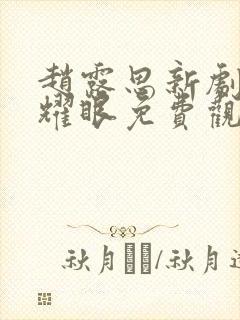 趙露思新劇
耀眼免費觀
秋月/秋月